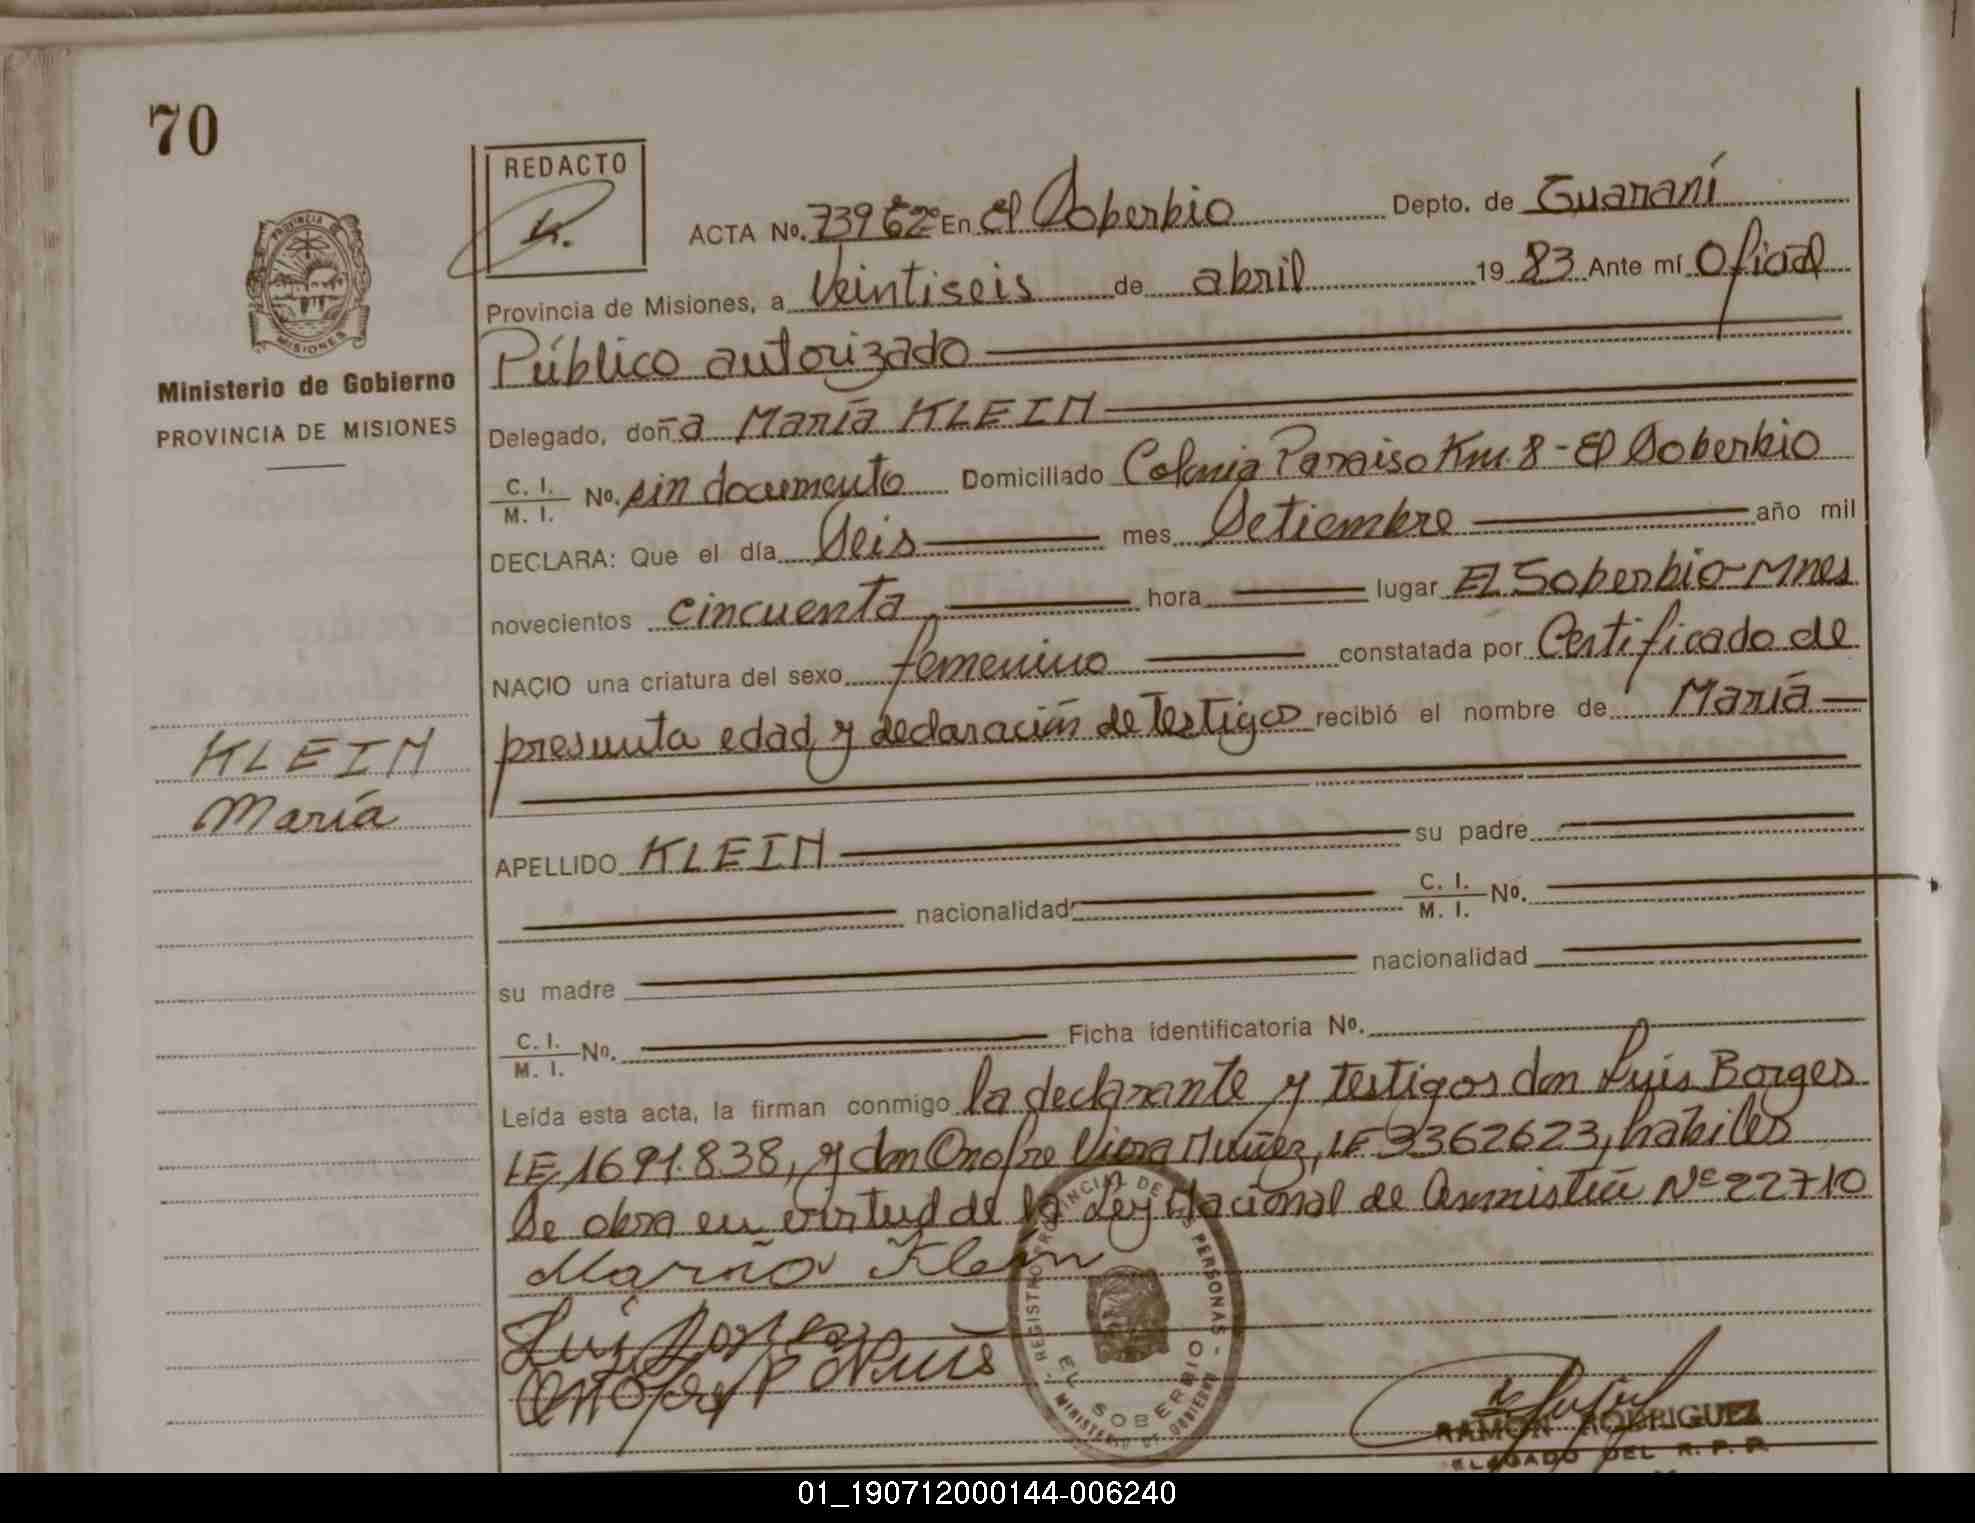 70
REDACTO
ACTA No. 739 62º En El Soberbio Depto. de Guaraní
Provincia de Misiones, a Veintiseis de abril 1983 Ante mí Oficial
Público autorizado
Ministerio de Gobierno
PROVINCIA DE MISIONES
Delegado, doña María KLEIN
C. I. / M. I. No. sin documento Domiciliado Colonia Paraiso Km. 8 - El Soberbio
DECLARA: Que el día Seis mes Setiembre año mil
novecientos cincuenta hora lugar El Soberbio-Mnes
NACIO una criatura del sexo femenino constatada por Certificado de
presunta edad y declaración de testigos recibió el nombre de María
KLEIN
María
APELLIDO KLEIN su padre
nacionalidad C. I. / M. I. No.
su madre nacionalidad
C. I. / M. I. No. Ficha identificatoria No.
Leída esta acta, la firman conmigo la declarante y testigos don Luis Borges
LE 1691.838, y don Onofre Viera Nuñez, LE 3362623, habiles
Se obra en virtud de la Ley Nacional de Amnistía Nº 22710
María Klein
PROVINCIA DE MISIONES
REGISTRO PROVINCIAL DE LAS PERSONAS
EL SOBERBIO
MINISTERIO DE GOBIERNO
RAMON RODRIGUEZ
DELEGADO DEL R. P. P.
01_190712000144-006240